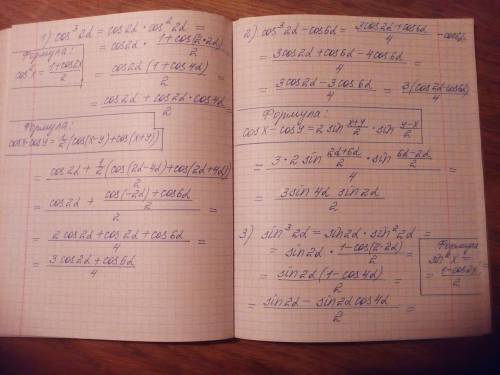 1) cos³2α = cos2α · cos²2α =
Формула:
cos²x = (1+cos2x)/2
= cos2α · (1+cos(2·2α))/2 =
= cos2α (1+cos4α)/2 =
= (cos2α + cos2α · cos4α)/2
Формула:
cosx·cosy = 1/2 (cos(x-y)+cos(x+y))
= (cos2α + 1/2 (cos(2α-4α)+cos(2α+4α)))/2 =
= (cos2α + (cos(-2α) + cos6α)/2)/2 =
= (2cos2α + cos2α + cos6α)/4 =
= (3cos2α + cos6α)/4
2) cos³2α - cos6α = (3cos2α + cos6α)/4 - cos6α =
= (3cos2α + cos6α - 4cos6α)/4 =
= (3cos2α - 3cos6α)/4 = 3(cos2α cos6α)/4
Формула:
cosx - cosy = 2 sin (x+y)/2 · sin (y-x)/2
= (3·2 sin (2α+6α)/2 · sin (6α-2α)/2)/4 =
= (3 sin4α sin2α)/2
3) sin³2α = sin2α · sin²2α =
= sin2α · (1-cos(2·2α))/2 =
Формула
sin²x =
= (1-cos2x)/2
= sin2α (1-cos4α)/2 =
= (sin2α - sin2α cos4α)/2 =